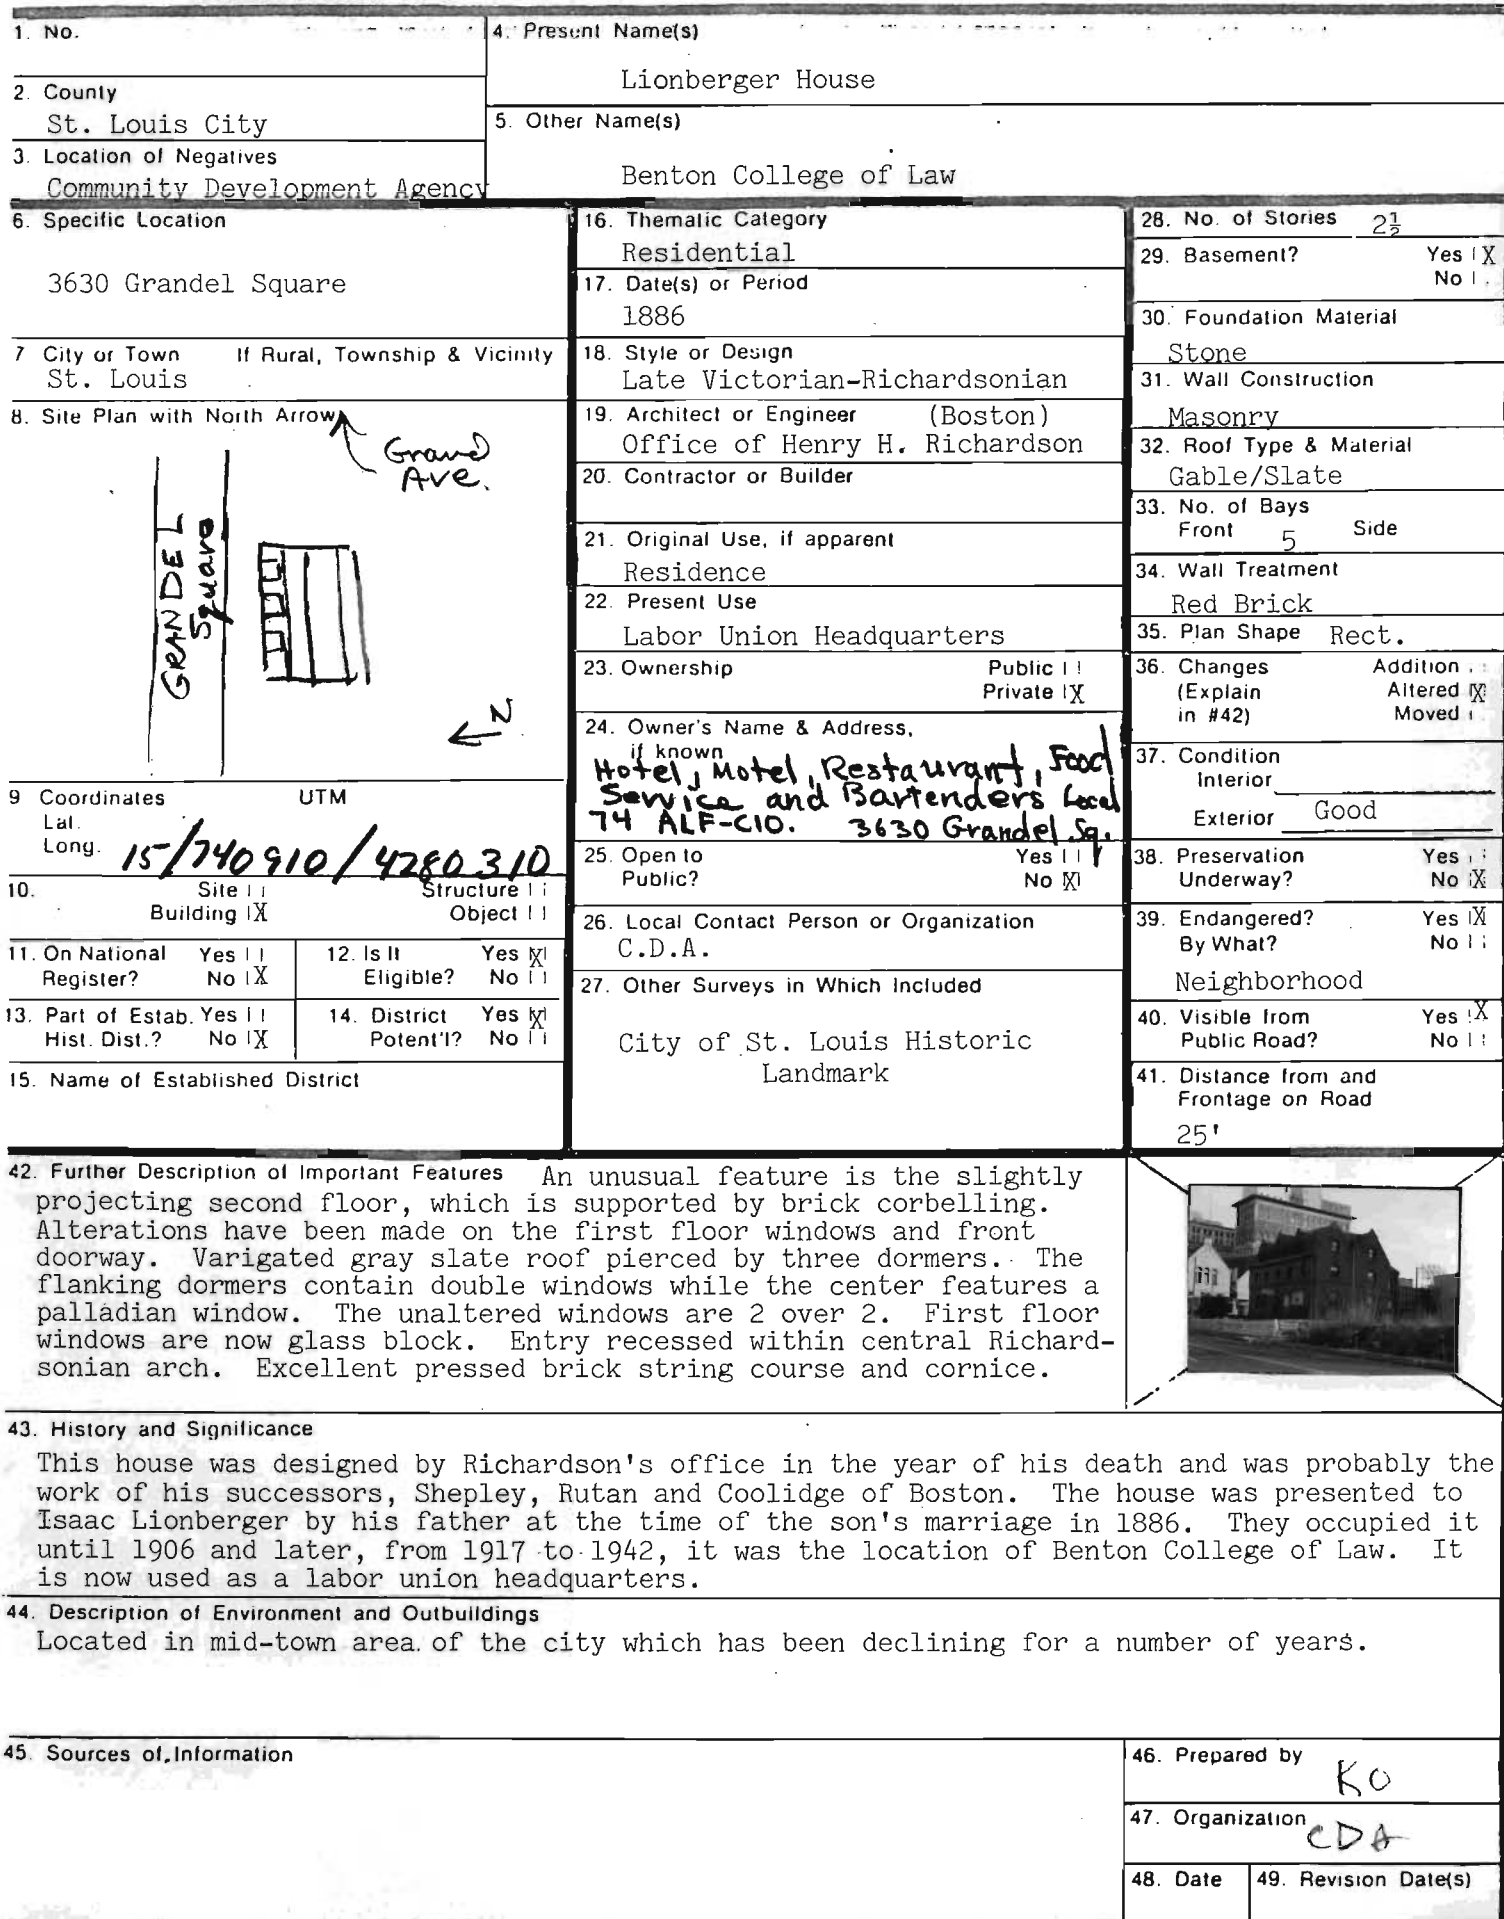 1. No.
4. Present Name(s)
Lionberger House
2. County
St. Louis City
5. Other Name(s)
Benton College of Law
3. Location of Negatives
Community Development Agency
6. Specific Location
3630 Grandel Square
7 City or Town If Rural, Township & Vicinity
St. Louis
8. Site Plan with North Arrow
Grand
Ave.
GRANDEL
Square
N
9 Coordinates UTM
Lat.
Long.
15/740910/4280310
10. Site Structure
Building X Object
11. On National Yes
Register? No X
12. Is It Yes X
Eligible? No
13. Part of Estab. Yes
Hist. Dist.? No X
14. District Yes X
Potent'l? No
15. Name of Established District
16. Thematic Category
Residential
17. Date(s) or Period
1886
18. Style or Design
Late Victorian-Richardsonian
19. Architect or Engineer (Boston)
Office of Henry H. Richardson
20. Contractor or Builder
21. Original Use, if apparent
Residence
22. Present Use
Labor Union Headquarters
23. Ownership Public
Private X
24. Owner's Name & Address,
if known
Hotel, Motel, Restaurant, Food
Service and Bartenders Local
74 ALF-CIO. 3630 Grandel Sq.
25. Open to Yes
Public? No X
26. Local Contact Person or Organization
C.D.A.
27. Other Surveys in Which Included
City of St. Louis Historic
Landmark
28. No. of Stories 2½
29. Basement? Yes X
No
30. Foundation Material
Stone
31. Wall Construction
Masonry
32. Roof Type & Material
Gable/Slate
33. No. of Bays
Front 5 Side
34. Wall Treatment
Red Brick
35. Plan Shape Rect.
36. Changes Addition
(Explain Altered X
in #42) Moved
37. Condition
Interior
Exterior Good
38. Preservation Yes
Underway? No X
39. Endangered? Yes X
By What? No
Neighborhood
40. Visible from Yes X
Public Road? No
41. Distance from and
Frontage on Road
25'
42. Further Description of Important Features An unusual feature is the slightly
projecting second floor, which is supported by brick corbelling.
Alterations have been made on the first floor windows and front
doorway. Varigated gray slate roof pierced by three dormers. The
flanking dormers contain double windows while the center features a
palladian window. The unaltered windows are 2 over 2. First floor
windows are now glass block. Entry recessed within central Richard-
sonian arch. Excellent pressed brick string course and cornice.
43. History and Significance
This house was designed by Richardson's office in the year of his death and was probably the
work of his successors, Shepley, Rutan and Coolidge of Boston. The house was presented to
Isaac Lionberger by his father at the time of the son's marriage in 1886. They occupied it
until 1906 and later, from 1917 to 1942, it was the location of Benton College of Law. It
is now used as a labor union headquarters.
44. Description of Environment and Outbuildings
Located in mid-town area of the city which has been declining for a number of years.
45. Sources of Information
46. Prepared by
KO
47. Organization
CDA
48. Date
49. Revision Date(s)